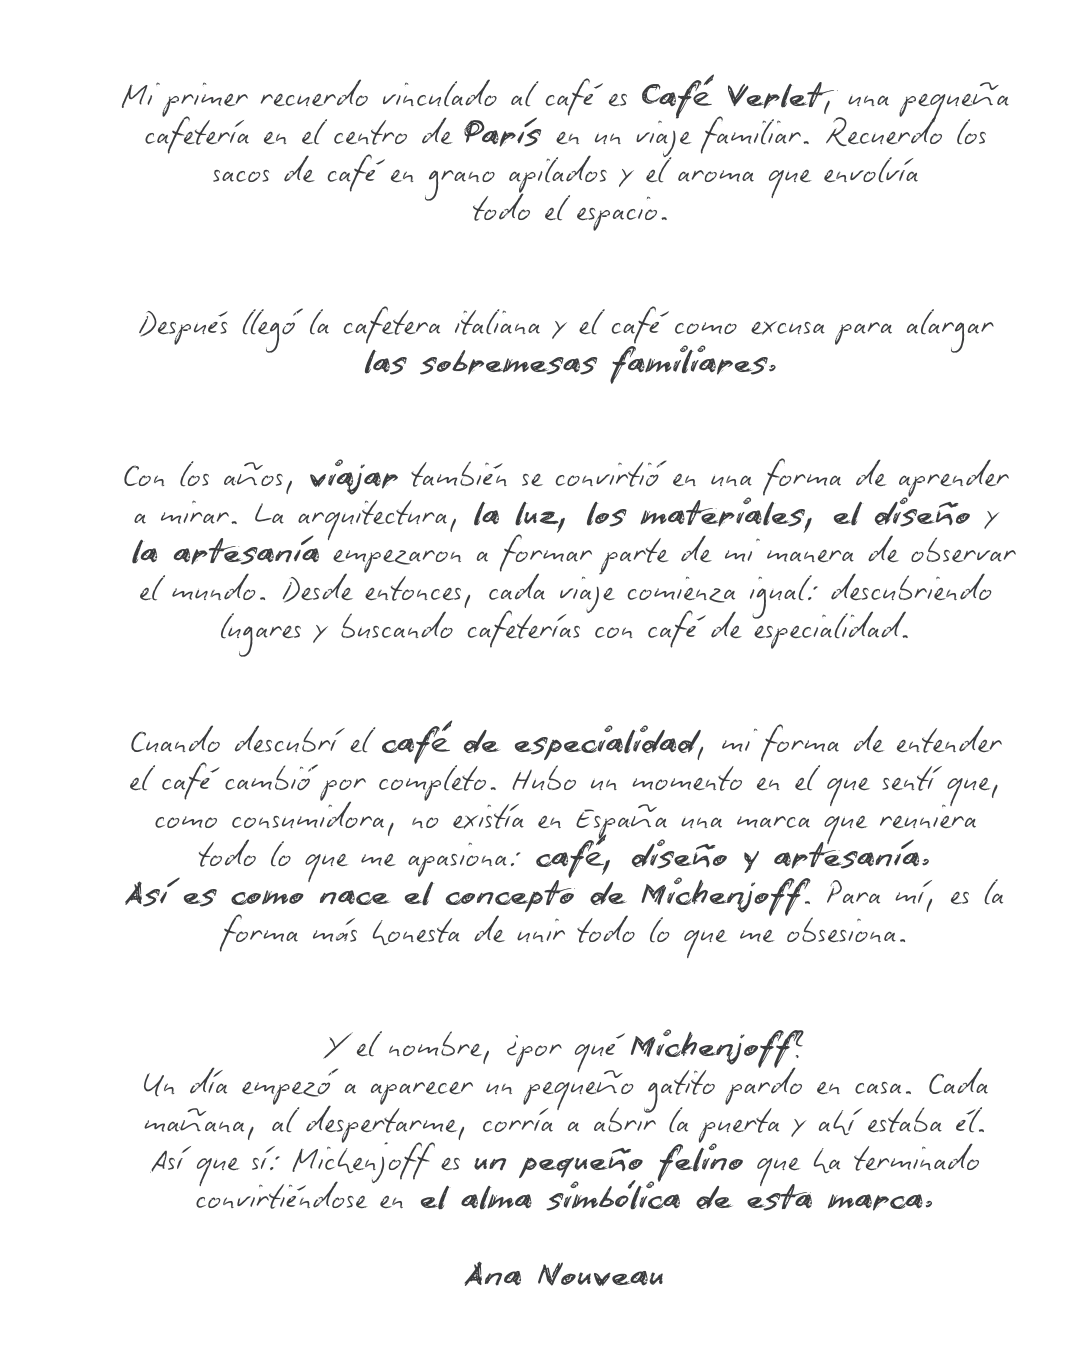 Mi primer recuerdo vinculado al café es Café Verlet, una pequeña
cafetería en el centro de París en un viaje familiar. Recuerdo los
sacos de café en grano apilados y el aroma que envolvía
todo el espacio.
Después llegó la cafetera italiana y el café como excusa para alargar
las sobremesas familiares.
Con los años, viajar también se convirtió en una forma de aprender
a mirar. La arquitectura, la luz, los materiales, el diseño y
la artesanía empezaron a formar parte de mi manera de observar
el mundo. Desde entonces, cada viaje comienza igual: descubriendo
lugares y buscando cafeterías con café de especialidad.
Cuando descubrí el café de especialidad, mi forma de entender
el café cambió por completo. Hubo un momento en el que sentí que,
como consumidora, no existía en España una marca que reuniera
todo lo que me apasiona: café, diseño y artesanía.
Así es como nace el concepto de Michenjoff. Para mí, es la
forma más honesta de unir todo lo que me obsesiona.
Y el nombre, ¿por qué Michenjoff?
Un día empezó a aparecer un pequeño gatito pardo en casa. Cada
mañana, al despertarme, corría a abrir la puerta y ahí estaba él.
Así que sí: Michenjoff es un pequeño felino que ha terminado
convirtiéndose en el alma simbólica de esta marca.
Ana Nouveau